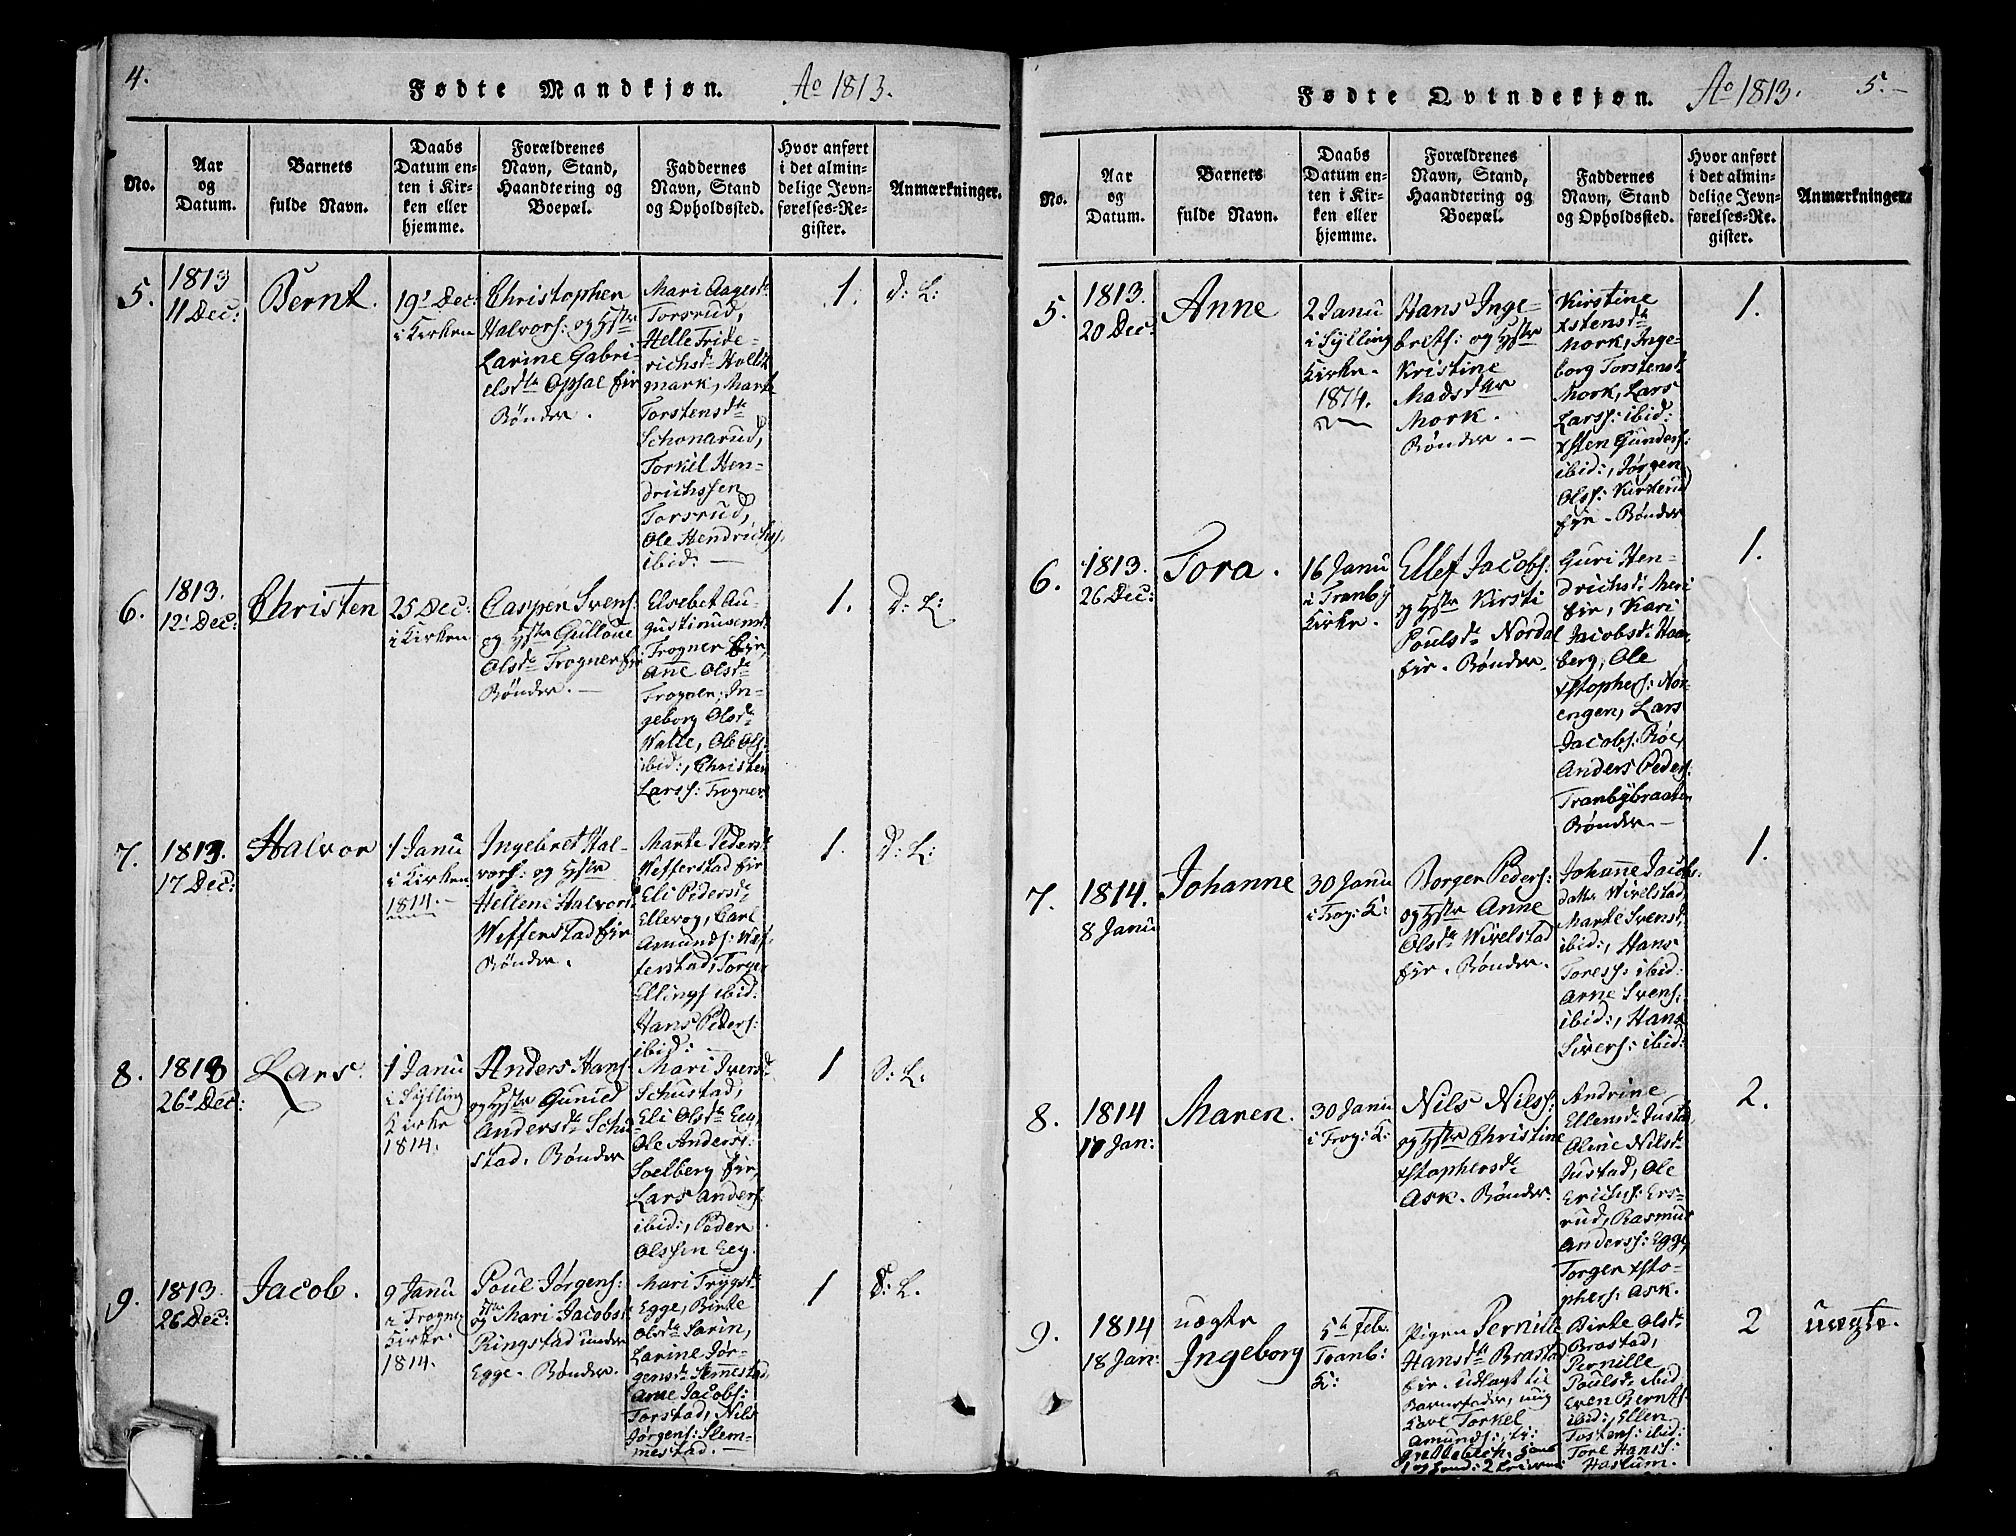 4.
Fødte Mandkjøn. Ao 1813.
No.
Aar
og
Datum.
Barnets
fulde Navn.
Daabs
Datum en-
ten i Kir-
ken eller
hjemme.
Forældrenes
Navn, Stand,
Haandtering og
Boepæl.
Faddernes
Navn, Stand
og Opholdssted.
Hvor anført
i det almin-
delige Jevn-
førelses-Re-
gister.
Anmærkninger.
5.
1813
11 Dec:
Bernt.
19' Dec
i Kirken
Christopher
Halvors: og Hstr
Larine Gabri-
elsdtr Opsal Eier
Bønder.
Mari Aagesdtr
Torsrud,
Helle Fride-
richsd: Holtz
mark, Marte
Torstensdtr
Schonarud,
Torkil Hen-
drichssen
Torsrud,
Ole Hendrichs:
ibid: —
1.
D: L:
6.
1813.
12' Dec:
Christen
25 Dec:
i Kirken
Casper Svens:
og Hstr Gulloue
Olsdtr Trogner Eier
Bønder. —
Elsebet Au-
gustinusensd:
Trogner Eier,
Añe Olsdtr
Trogner, In-
geborg Olsdtr
Walle, Ole Ols:
ibid:, Christen
Larss: Trogner
1.
D: L:
7.
1813.
17 Dec:
Halvor
1 Janu
i Kirken
1814. —
Ingebret Hal-
vors: og Hstr
Hellene Halvors:
Wefferstad Eier
Bønder.
Marte Pedersd
Wefferstad Eier
Eli Pedersdtr
Ellevog, Carl
Amunds: Wef
ferstad, Torger
Ellings ibid.
Hans Peders:
ibid: —
1.
D: L:
8.
1813
26' Dec:
Lars.
1 Janu
i Sylling
Kirke
1814.
Anders Hans:
og Hstr Gunild
Andersdtr Schu
stad. Bønder
Mari Iversd
Schustad,
Eli Olsdtr Eeg,
Ole Anders:
Soelberg Eier,
Lars Anders
ibid:, Peder
Olssen Eeg.
1
D: L:
9.
1813.
26 Dec:
Jacob.
9 Janu
i Trogner
Kirke:
1814.
Poul Jørgens:
og Hstr Mari Jacobsd:
Ringstad under
Egge. Bønder.
Mari Trygsd:
Egge, Birte
Olsdtr Sarin,
Larine Jør-
gensd: Slemmestad,
Arne Jacobs:
Torstad, Nils
Jørgens: Slem-
mestad. —
1
D: L.
Fødte Qvindekjøn. Ao 1813. 5. —
No.
Aar
og
Datum.
Barnets
fulde Navn.
Daabs
Datum en-
ten i Kir-
ken eller
hjemme.
Forældrenes
Navn, Stand,
Haandtering og
Boepæl.
Faddernes
Navn, Stand
og Opholdssted.
Hvor anført
i det almin-
delige Jevn-
førelses-Re-
gister.
Anmærkninger.
5.
1813.
20 Dec:
Anne
2 Janu
i Sylling
Kirke.
1814.
Hans Inge-
brets: og Hstr
Kristine
Madsdtr
Mork.
Bønder. —
Kirstine
xstensdtr
Mork, Inge-
borg Torstensd
Mork, Lars
Larss: ibid:
xsten Gunders:
ibid:, Jørgen
Olss: Kirkerud
Eier. Bønder
1.
6.
1813.
26 Dec:
Tora.
16 Janu
i Tranby
Kirke.
Ellef Jacobs:
og Hstr Kirsti
Poulsdtr Nordal
Eier. Bønder.
Guri Hen-
drichsd: Meri
Eier, Kari
Jacobsd: Haa-
berg, Ole
xstophers: Nor-
engen, Lars
Jacobs: Røe,
Anders Peders:
Tranbybraaten
Bønder. —
1.
7.
1814.
8 Janu
Johanne
30 Janu
i Trog: K:
Borger Peders:
og Hstr Anne
Olsdtr Wivelstad
Eier. Bønder.
Johañe Jacobs-
datter Wivelstad,
Marte Svensd:
ibid:, Hans
Toress: ibid:
Arne Svens:
ibid:, Hans
Sivers: ibid:
1.
8.
1814
17 Jan:
Maren.
30 Janu
i Trog: K:
Nils Nilss:
og Hstr Christine
xstophersdtr
Ask. Bønder.
Andrine
Ellensd: Justad
Oline Nilsd:
Justad, Ole
Erichs: Ers-
rud, Rasmus
Anderss: Egge,
Torger xsto-
phers: Ask.
2.
9.
1814
18 Jan:
uægte
Ingeborg
5te Feb:
Tranb:
K:
Pigen Pernille
Hansdtr Brastad
Eier. Udlagt til
Barnefader, ung
Karl Torkel
Amunds:
Birte Olsd:
Brastad,
Pernille
Poulsd: ibid,
Even Bernts
ibid:, Ellen
Tostens: ibid:
Tore Hans:
Haslum.
2
uægte.